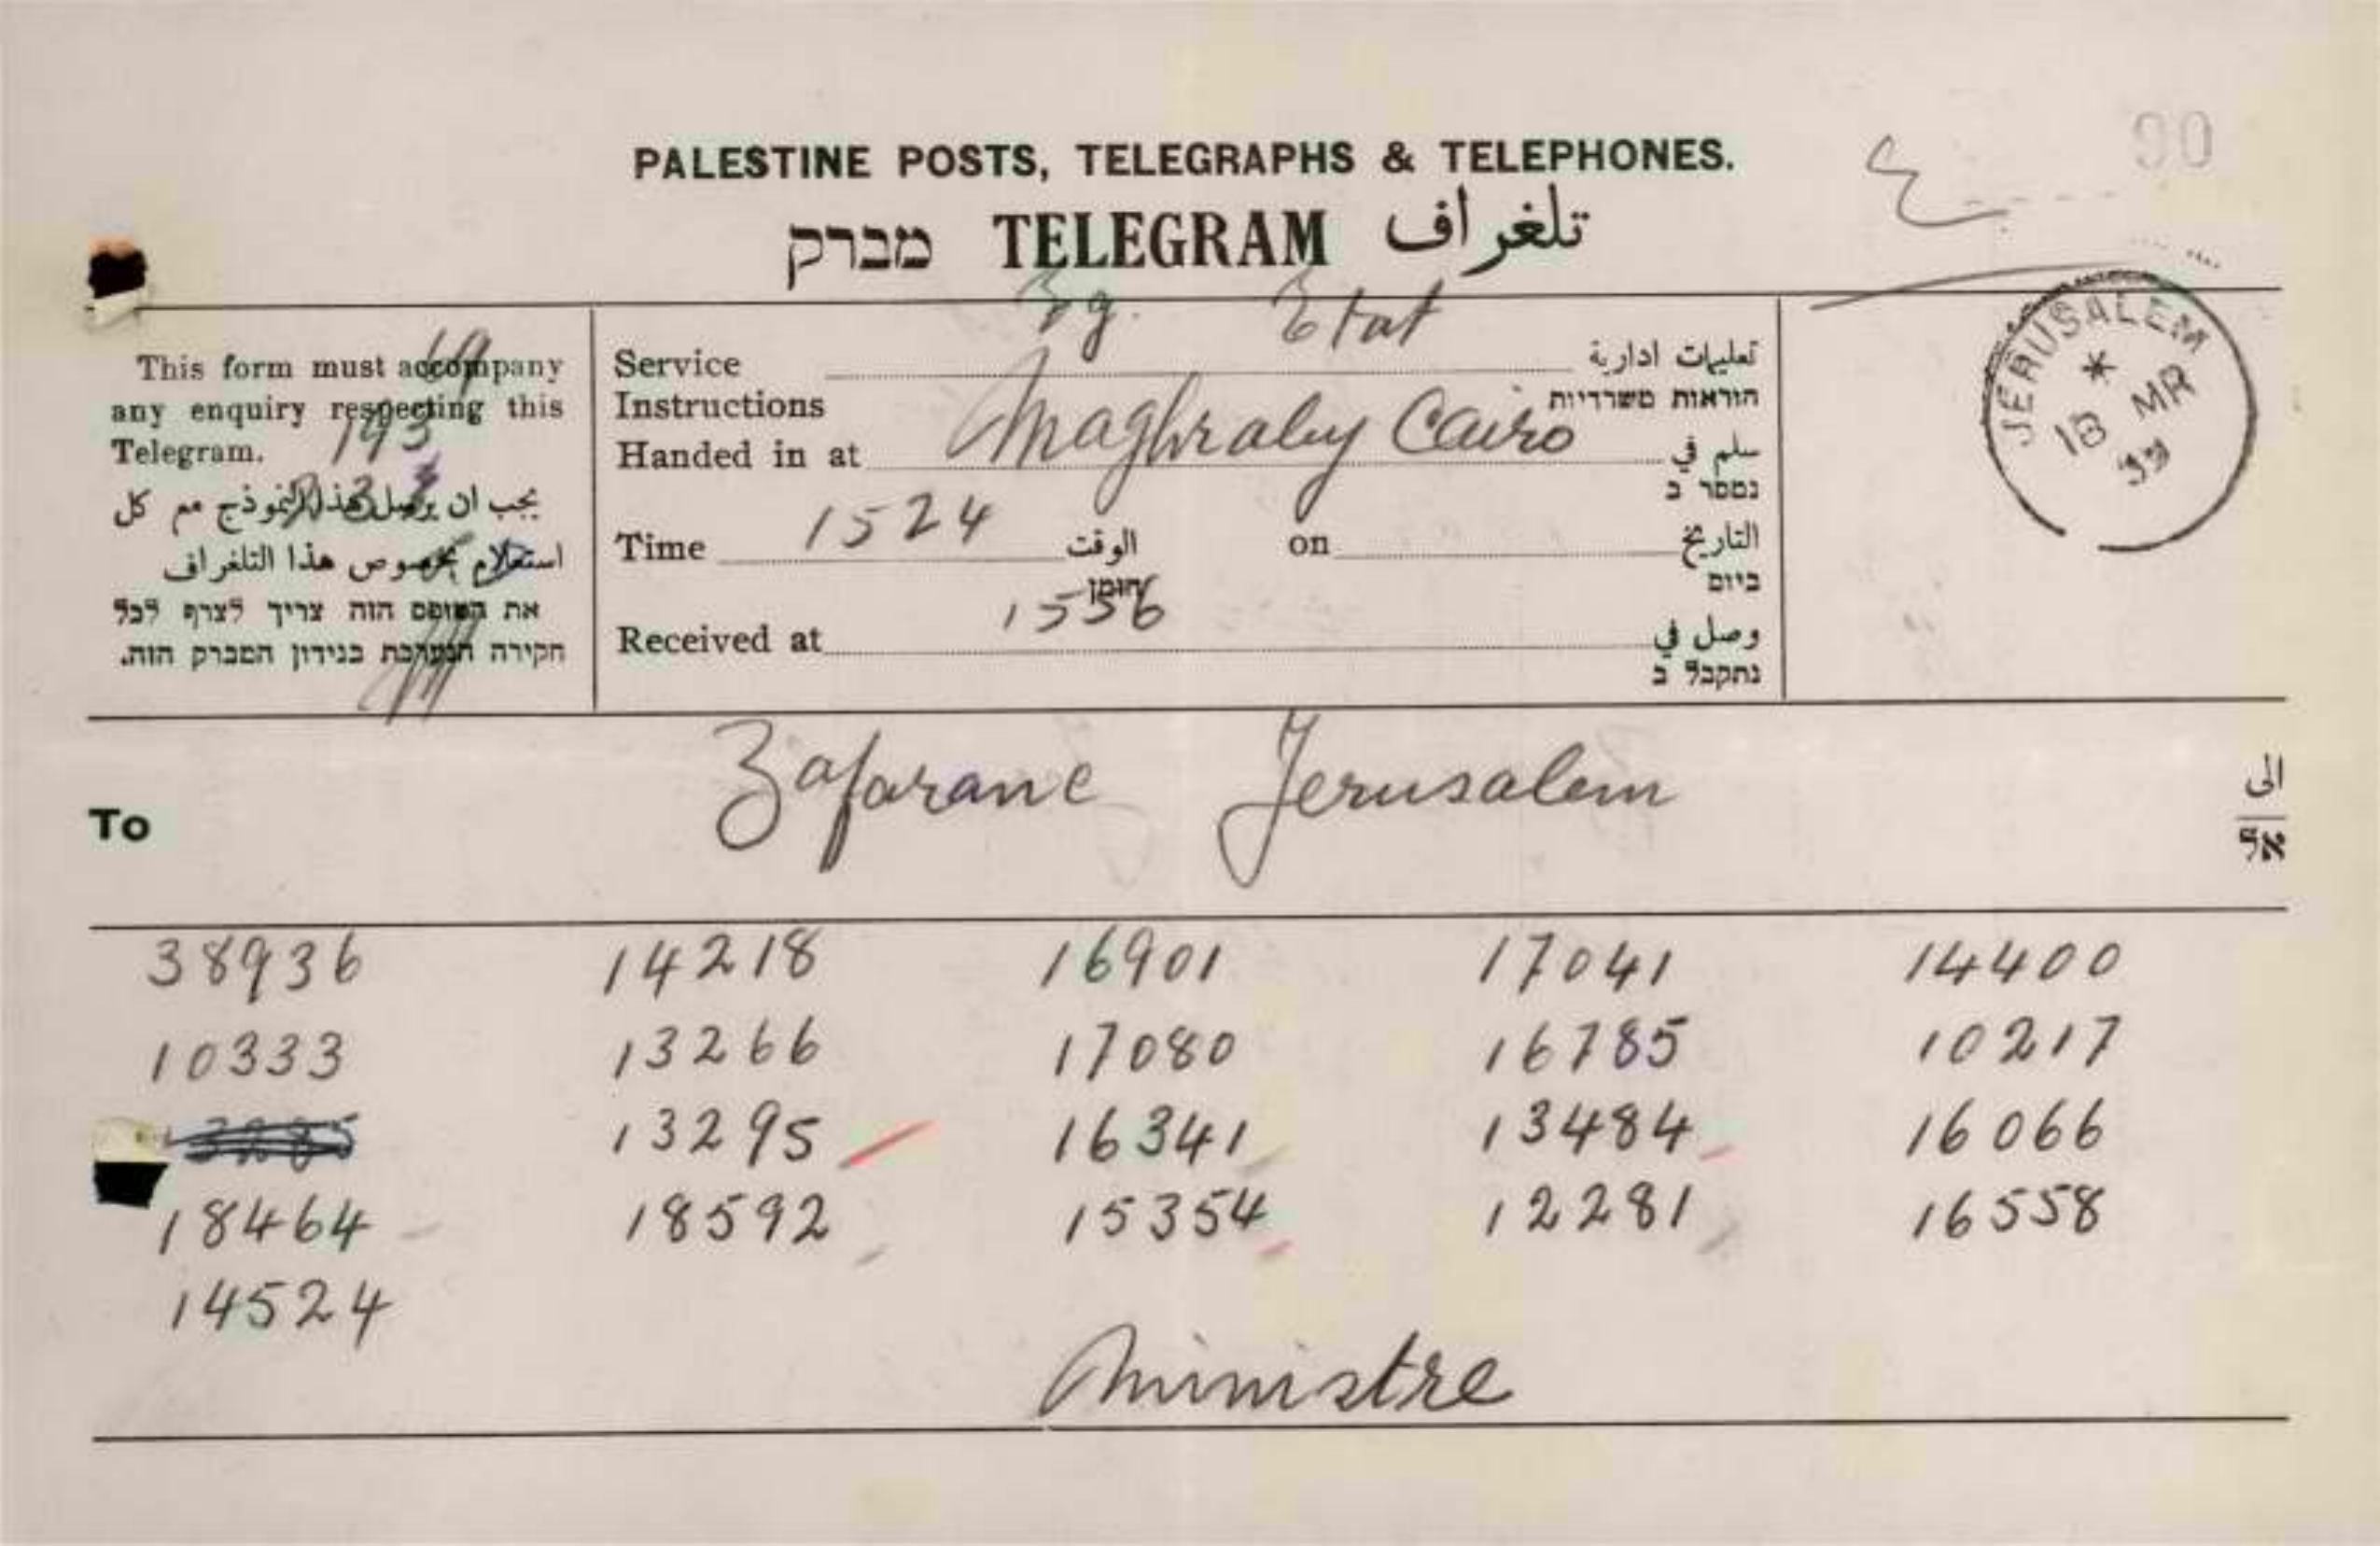 90
PALESTINE POSTS, TELEGRAPHS & TELEPHONES.
מברק TELEGRAM تلغراف
Etat
This form must accompany
any enquiry respecting this
Telegram.
يجب ان يرسل هذا النموذج مع كل
استعلام بخصوص هذا التلغراف
את הטופס הזה צריך לצרף לכל
חקירה הנערכת בנידון המברק הזה.
Service تعليمات ادارية
Instructions הוראות משרדיות
Handed in at Maghraby Cairo سلم في
נמסר ב
Time 1524 الوقت on التاريخ
הזמן ביום
1556
Received at وصل في
נתקבל ב
JERUSALEM
18 MR
39
To Zafarane Jerusalem الى
אל
38936 14218 16901 17041 14400
10333 13266 17080 16785 10217
13295 16341 13484 16066
18464 18592 15354 12281 16558
14524
Ministre